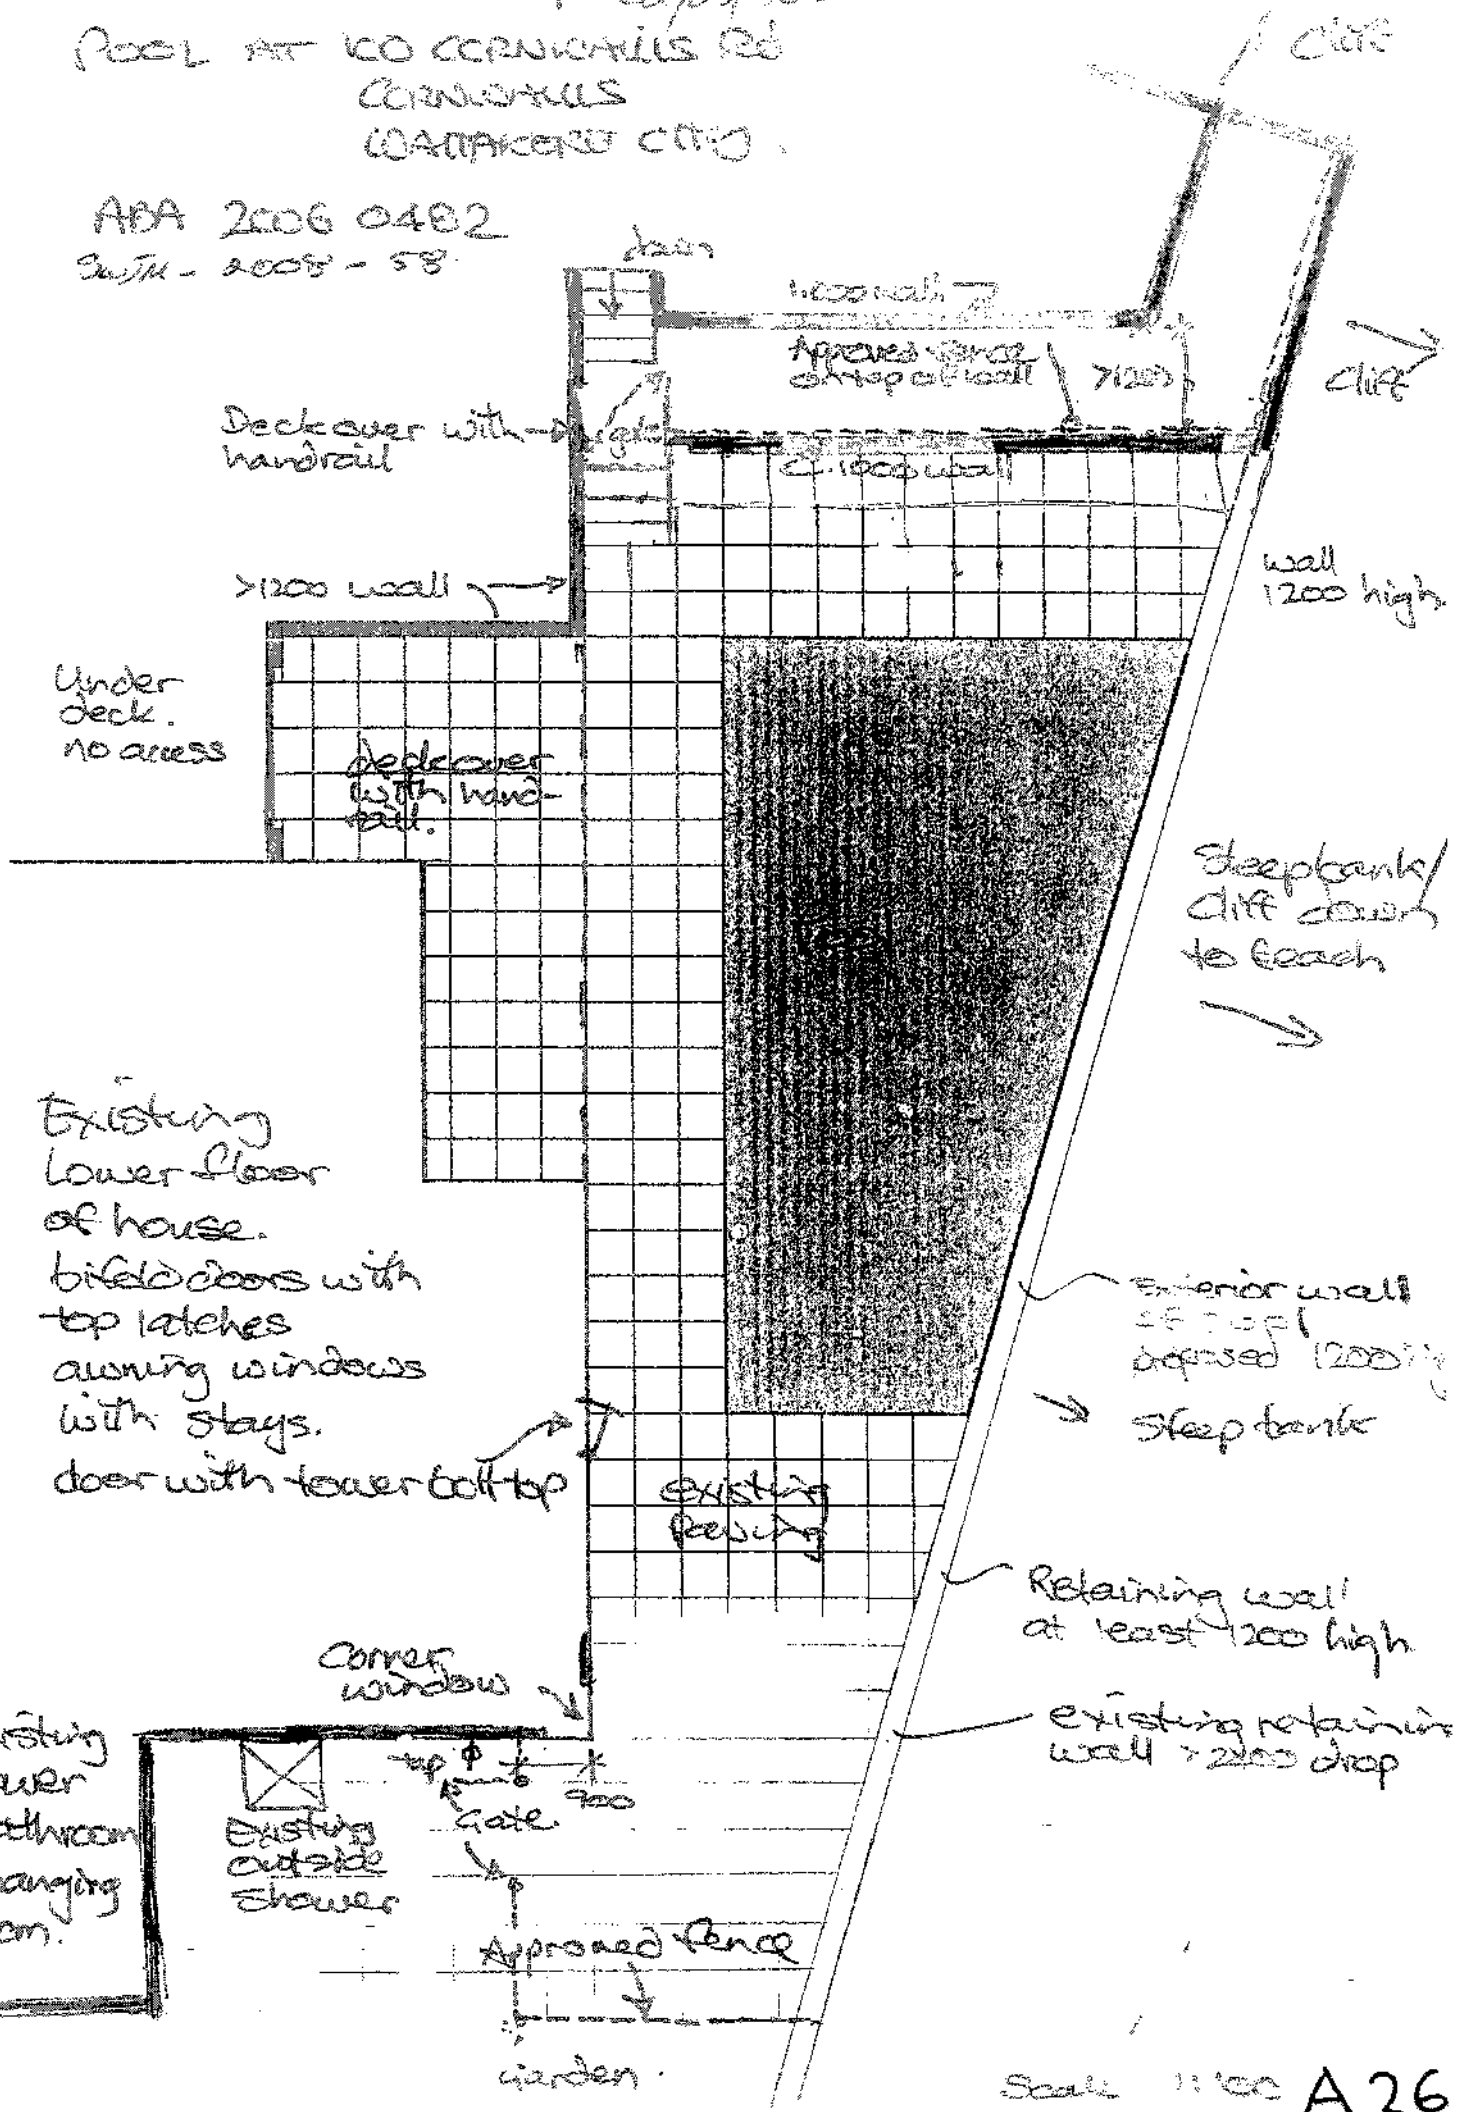 POOL AT 100 CORNWALLIS RD
CORNWALLIS
WAITAKERE CITY.
Cliff
ABA 2006 0482
SWIM - 2008 - 58
down
Approved fence
on top of wall
>1200
Cliff
Deck over with
handrail
gate
1000 wall
>1200 wall
wall
1200 high.
Under
deck.
no access
deck over
with hand-
rail.
Steep bank/
Cliff down
to beach
Existing
Lower floor
of house.
bifold doors with
top latches
awning windows
with stays.
door with tower bolt top
Exterior wall
of pool
proposed 1200
Steep bank
existing
Paving
Retaining wall
at least 1200 high
Corner
window
existing retainin
wall >2200 drop
isting
ower
athroom
anging
om.
900
Gate.
Existing
outside
Shower
Approved fence
Garden.
Scale
A26